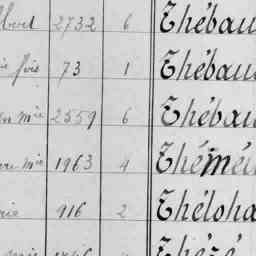 2732 6 Thébau
fois 73 1 Thébau
mie 2559 6 Thébau
mie 1963 4 Thémé
916 2 Théloha
Thézé